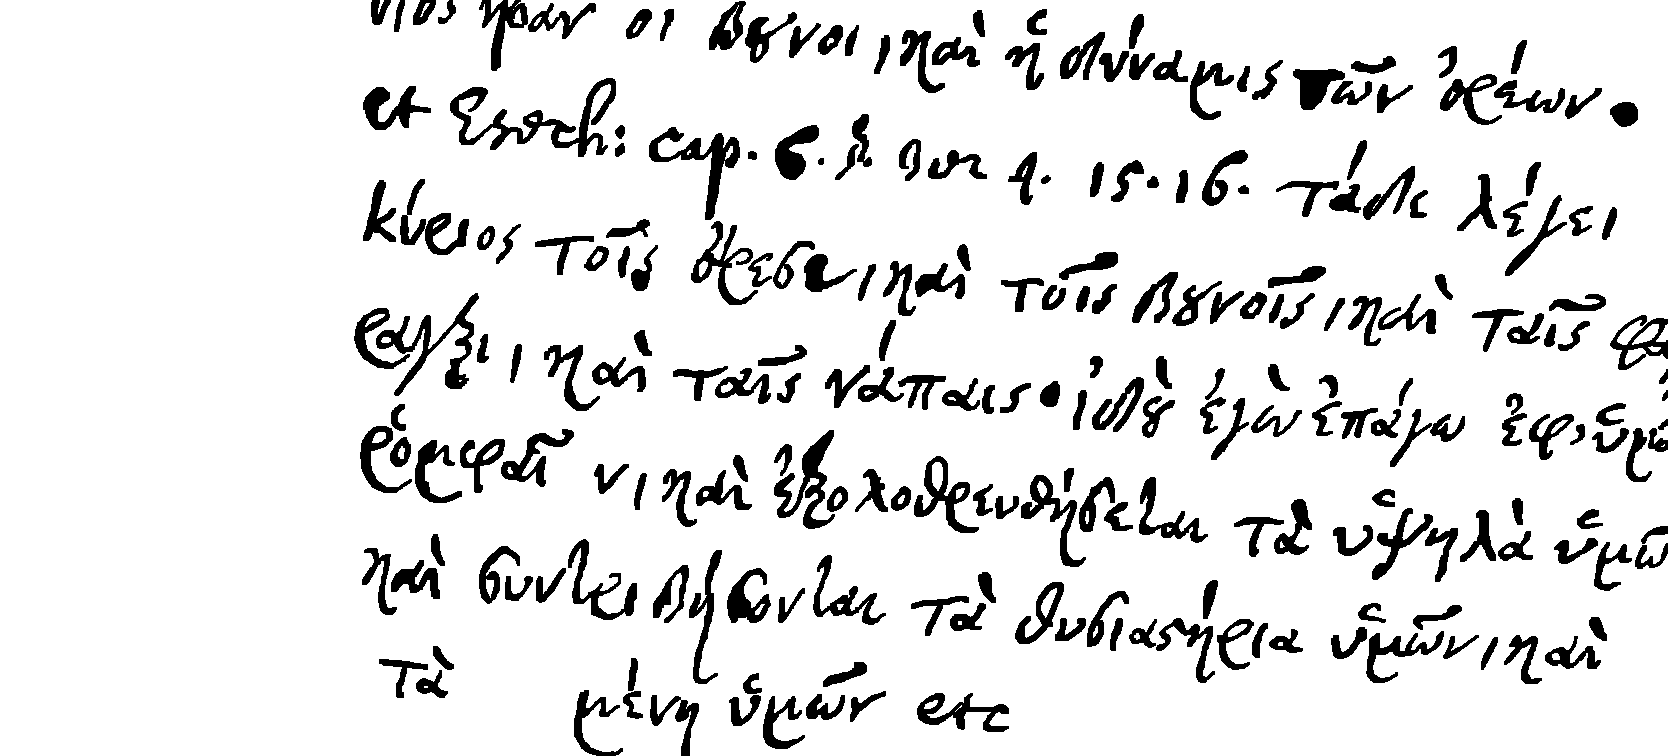 ἦσαν οἱ βουνοὶ, καὶ ἡ δύναμις τῶν ὀρέων.
et Ezech: cap. 6. 3. 4. 15. 16. τάδε λέγει
κύριος τοῖς ὄρεσι, καὶ τοῖς βουνοῖς, καὶ ταῖς φα
ραγξι, καὶ ταῖς νάπαις. ἰδοὺ ἐγὼ ἐπάγω ἐφ, ὑμᾶ
ῥομφαῖ ν, καὶ ἐξολοθρευθήσεται τὰ ὑψηλὰ ὑμῶ
καὶ συντριβήσονται τὰ θυσιαστήρια ὑμῶν, καὶ
τὰ μένη ὑμῶν etc